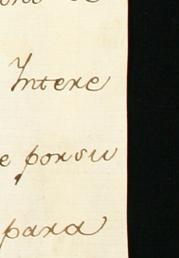 Intere
e porsu
para